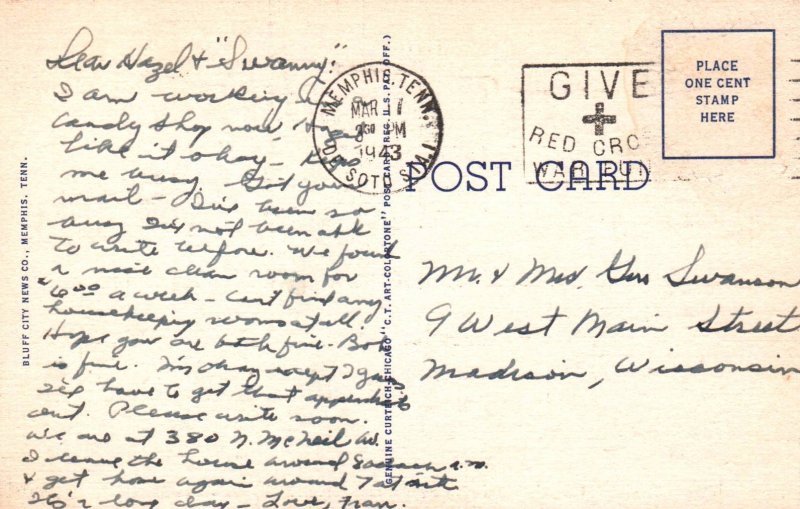 Dear Hazel & "Swanny":
I am working in
candy shop now &
like it okay - Keeps
me busy. Got your
mail - I've been so
busy I've not been able
to write before. We found
a nice clean room for
"6.00 a week - Can't find any
housekeeping rooms at all.
Hope you are both fine. Bob
is fine. I'm okay except I guess
I'll have to get that appendix
out. Please write soon.
We are at 380 N. McNeil Av.
I leave the house around 8 a.m.
& get home again around 7 at nite
It's a long day - Love, Fran.
MEMPHIS, TENN.
MAR 1
3 PM
1943
DE SOTO STA.
GIVE
RED CROSS
WAR FUND
PLACE
ONE CENT
STAMP
HERE
POST CARD
Mr. & Mrs. Gus Swanson
9 West Main Street
Madison, Wisconsin
BLUFF CITY NEWS CO., MEMPHIS, TENN.
GENUINE CURTEICH-CHICAGO "C.T. ART-COLORTONE" POST CARD (REG. U.S. PAT. OFF.)